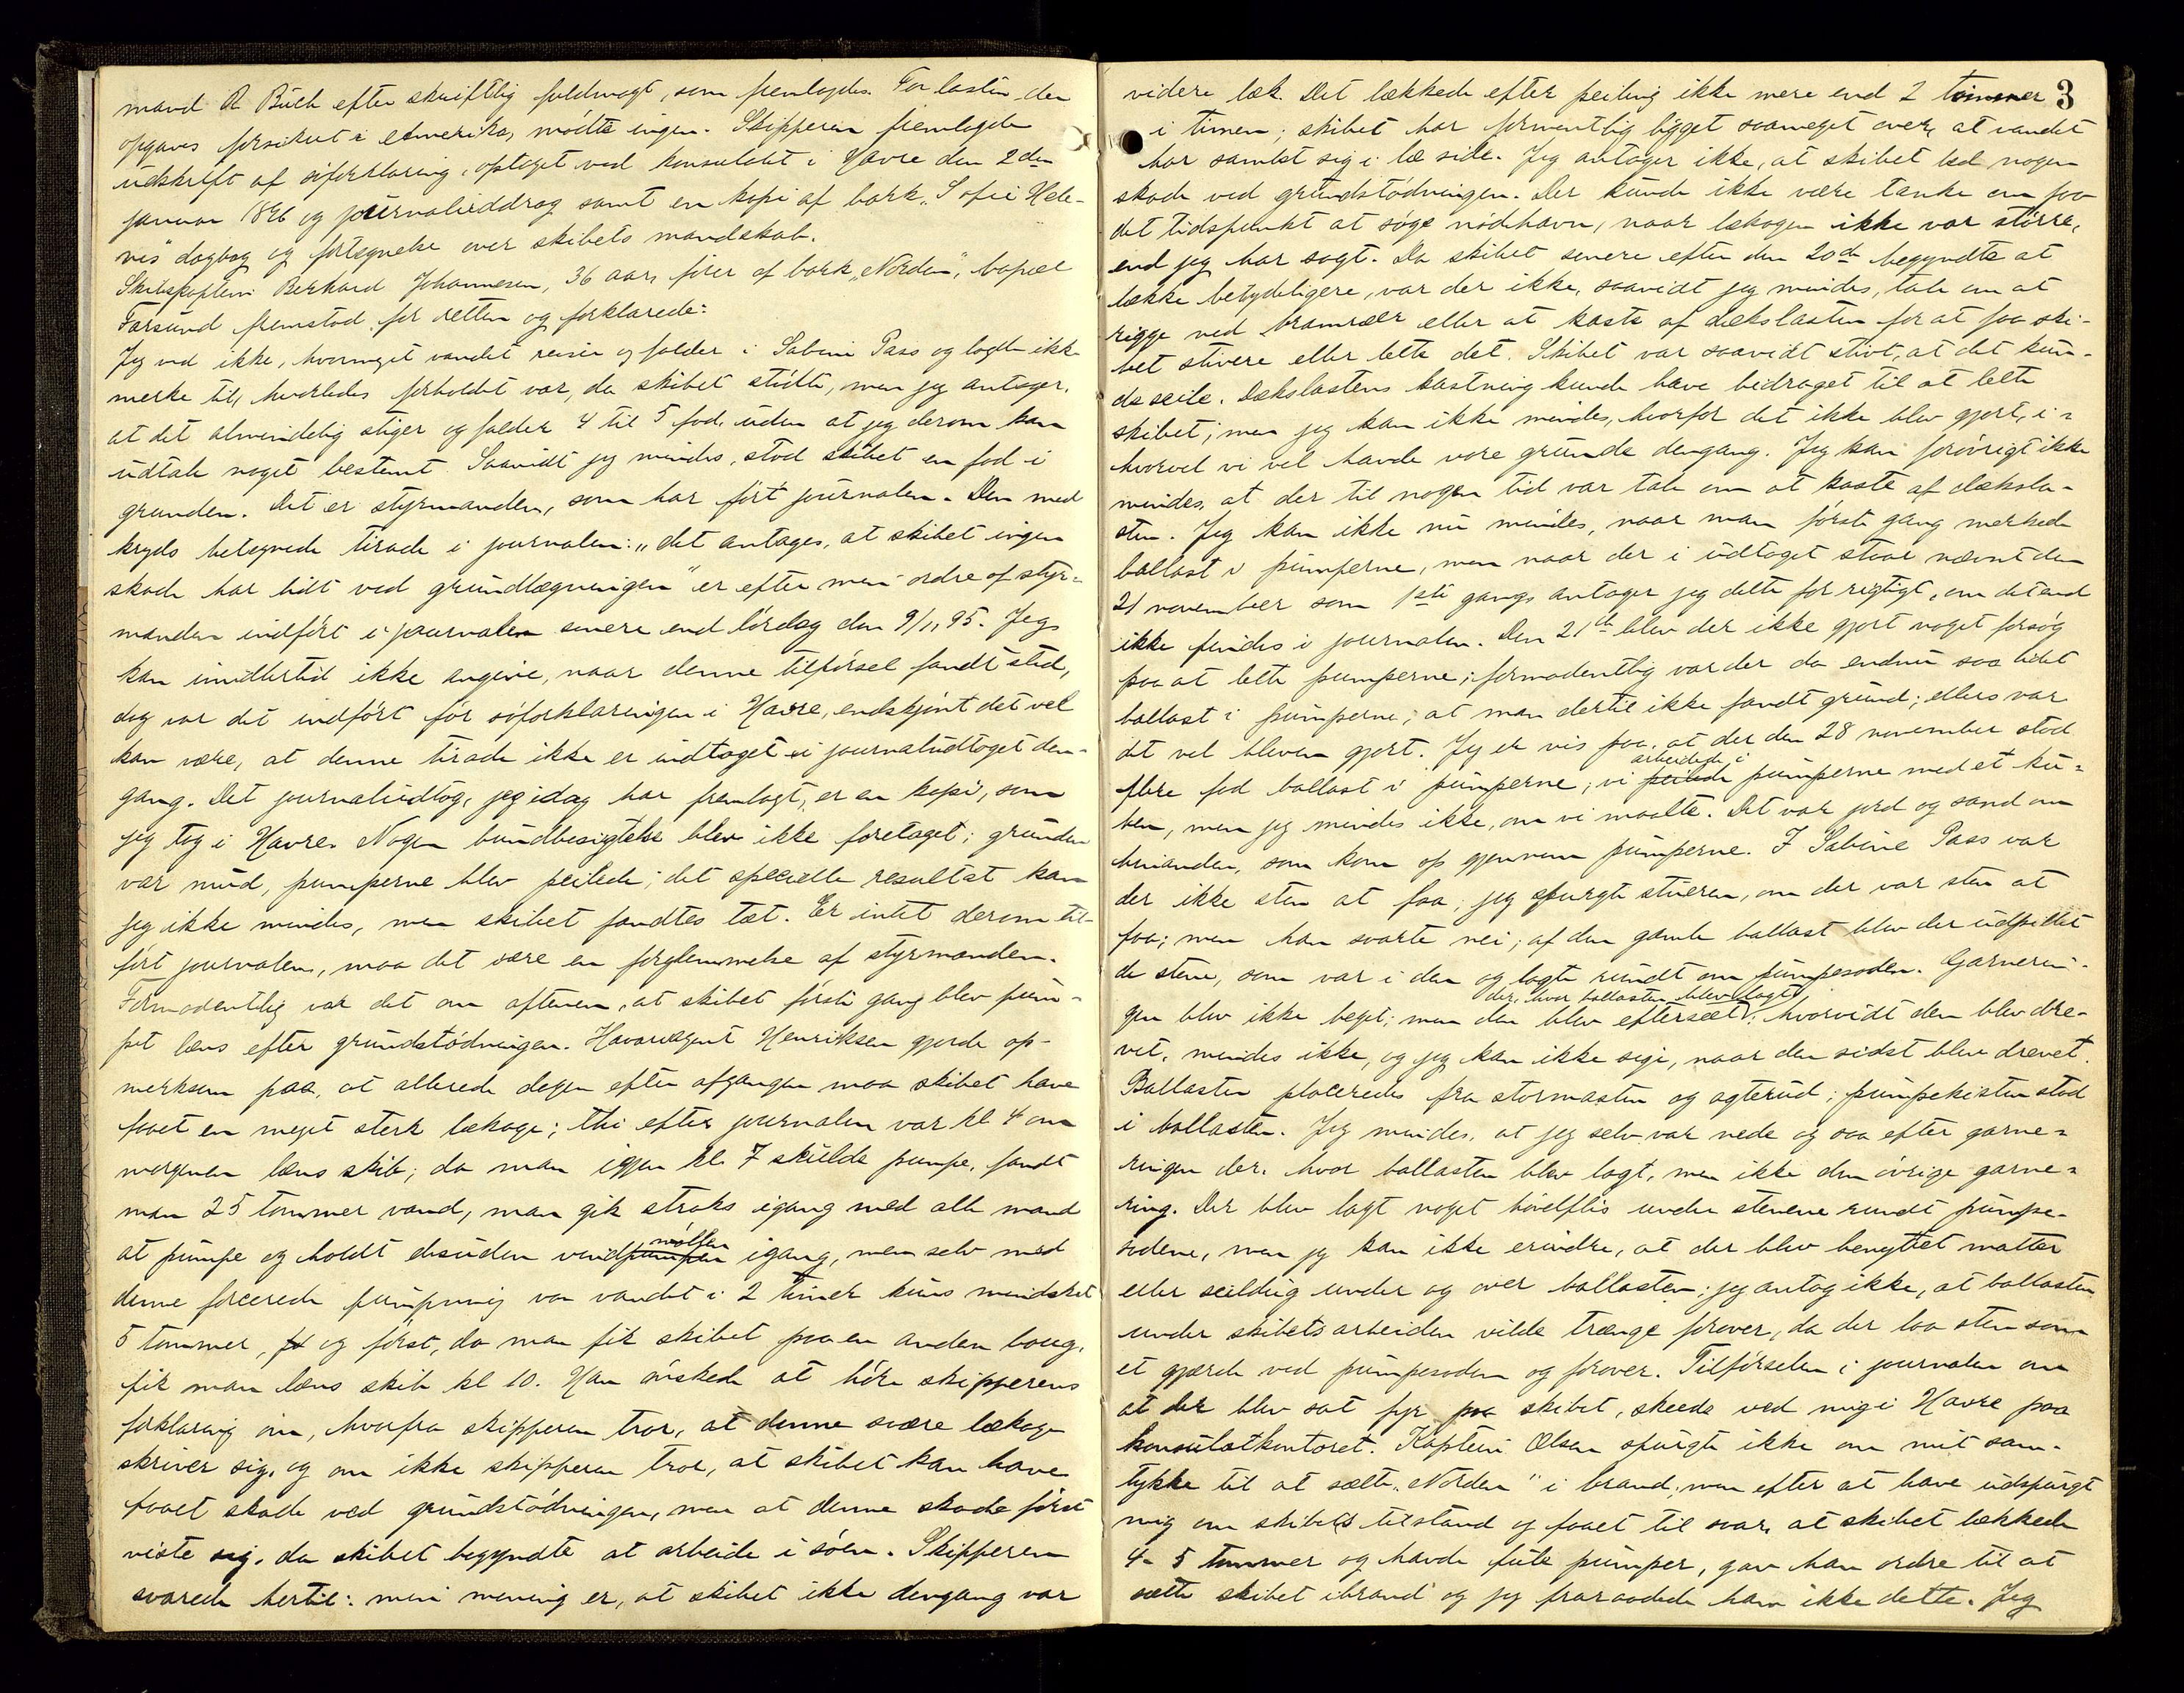 mand R Buch efter skriftlig fuldmagt, som fremlagdes. For lasten, der
opgaves forsikret i Amerika, mødte ingen. Skipperen fremlagde
udskrift af søforklaring, optaget ved konsulatet i Havre den 2den
januar 1896 og journaluddrag samt en kopi af bark „Sofie Hele-
nes" dagbog og fortegnelse over skibets mandskab.
Skibskaptein Berhard Johannesen, 36 aar, fører af bark „Norden", bopæl
Farsund fremstod for retten og forklarede:
Jeg ved ikke, hvormeget vandet reiser og falder i Sabine Pass og lagde ikke
merke til, hvorledes forholdet var, da skibet stødte, men jeg antager,
at det almindelig stiger og falder 4 til 5 fod, uden at jeg derom kan
udtale noget bestemt. Saavidt jeg mindes, stod skibet en fod i
grunden. Det er styrmanden, som har ført journalen. Den med
kryds betegnede tirade i journalen: „det antages, at skibet ingen
skade har lidt ved grundlægningen" er efter min ordre af styr-
manden indført i journalen senere end lørdag den 9/11 95. Jeg
kan imidlertid ikke angive, naar denne tilførsel fandt sted,
dog var det indført før søforklaringen i Havre, endskjønt det vel
kan være, at denne tirade ikke er indtaget i journaludtoget den-
gang. Det journaludtog, jeg idag har fremlagt, er en kopi, som
jeg tog i Havre. Nogen bundbesigtelse blev ikke foretaget; grunden
var mud, pumperne blev peilede; det specielle resultat kan
jeg ikke mindes, men skibet fandtes tæt. Er intet derom til-
ført journalen, maa det være en forglemmelse af styrmanden.
Formodentlig var det om aftenen, at skibet første gang blev pum-
pet læns efter grundstødningen. Havariagent Henriksen gjorde op-
merksom paa, at allerede dagen efter afgangen maa skibet have
faaet en meget sterk lækage; thi efter journalen var kl 4 om
morgenen læns skib; da man igjen kl. 7 skulde pumpe, fandt
man 25 tommer vand, man gik straks igang med alle mand
at pumpe og holdt desuden vindpumpen møllen igang, men selv med
denne forcerede pumpning var vandet i 2 timer kuns mindsket
5 tommer, og først, da man fik skibet paa en anden boug,
fik man læns skib kl 10. Han ønskede at høre skipperens
forklaring om, hvorfra skipperen tror, at denne svære lækage
skriver sig, og om ikke skipperen tror, at skibet kan have
faaet skade ved grundstødningen, men at denne skade først
viste sig, da skibet begyndte at arbeide i søen. Skipperen
svarede hertil: min mening er, at skibet ikke dengang var
3
videre læk. Det lækkede efter peiling ikke mere end 2 tommer
i timen; skibet har formentlig ligget saameget over, at vandet
har samlet sig i læ side. Jeg antager ikke, at skibet led nogen
skade ved grundstødningen. Der kunde ikke være tanke om paa
det tidspunkt at søge nødhavn, naar lækagen ikke var større,
end jeg har sagt. Da skibet senere efter den 20de begyndte at
lække betydeligere, var der ikke, saavidt jeg mindes, tale om at
rigge ned bramræer eller at kaste af dækslasten for at faa ski-
bet stivere eller lette det. Skibet var saavidt stivt, at det kun-
de seile. Dækslastens kastning kunde have bidraget til at lette
skibet; men jeg kan ikke mindes, hvorfor det ikke blev gjort, i-
hvorvel vi vel havde vore grunde dengang. Jeg kan forøvrigt ikke
mindes, at der til nogen tid var tale om at kaste af dæksla-
sten. Jeg kan ikke nu mindes, naar man første gang merkede
ballast i pumperne, men naar der i udtoget staar nævnt den
21 november som 1ste gang, antager jeg dette for rigtigt, om det end
ikke findes i journalen. Den 21de blev der ikke gjort noget forsøg
paa at lette pumperne; formodentlig var der da endnu saa lidet
ballast i pumperne, at man dertil ikke fandt grund; ellers var
det vel bleven gjort. Jeg er vis paa, at der den 28 november stod
flere fod ballast i pumperne; vi peilede arbeidede i pumperne med et ku-
ben, men jeg mindes ikke, om vi maalte. Det var jord og sand om
hinanden, som kom op gjennem pumperne. I Sabine Pass var
der ikke sten at faa; jeg spurgte stueren, om der var sten at
faa; men han svarte nei; af den gamle ballast blev der udpillet
de stene, som var i den og lagte rundt om pumpesoden. Garnerin-
gen blev ikke beget; men den blev efterseet der, hvor ballasten blev lagt; hvorvidt den blev dre-
vet, mindes ikke, og jeg kan ikke sige, naar den sidst blev drevet.
Ballasten placeredes fra stormasten og agterud; pumpekisten stod
i ballasten. Jeg mindes, at jeg selv var nede og saa efter garne-
ringen der, hvor ballasten blev lagt, men ikke den øvrige garne-
ring. Der blev lagt noget høvelflis under stenene rundt pumpe-
sodene, men jeg kan ikke erindre, at der blev benyttet matter
eller seildug under og over ballasten; jeg antog ikke, at ballasten
under skibets arbeiden vilde trænge forover, da der laa sten som
et gjærde ved pumpesoden og forover. Tilførselen i journalen om
at der blev sat fyr paa skibet, skeede ved mig i Havre paa
konsulatkontoret. Kaptein Olsen spurgte ikke om mit sam-
tykke til at sætte „Norden" i brand, men efter at have udspurgt
mig om skibets tilstand og faaet til svar, at skibet lækkede
4-5 tommer og havde fule pumper, gav han ordre til at
sætte skibet ibrand og jeg fraraadede ham ikke dette. Jeg